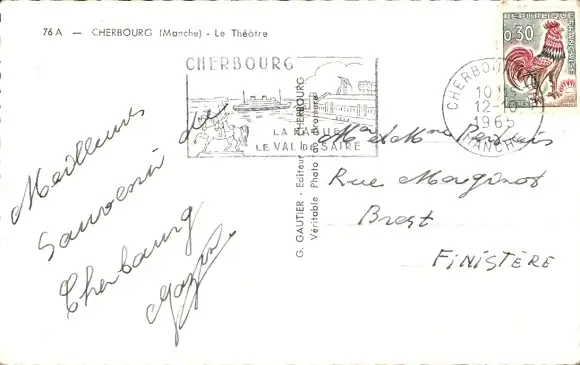 76 A — CHERBOURG (Manche) - Le Théâtre
RÉPUBLIQUE
FRANÇAISE
0,30
POSTES
CHERBOURG
LA HAGUE
LE VAL DE SAIRE
CHERBOURG
10
12-10
1965
MANCHE
Meilleurs
Souvenir de
Cherbourg
G. GAUTIER - Editeur - CHERBOURG
Véritable Photo au Bromure
Mr et Mme
Rue Maginot
Brest
FINISTÈRE